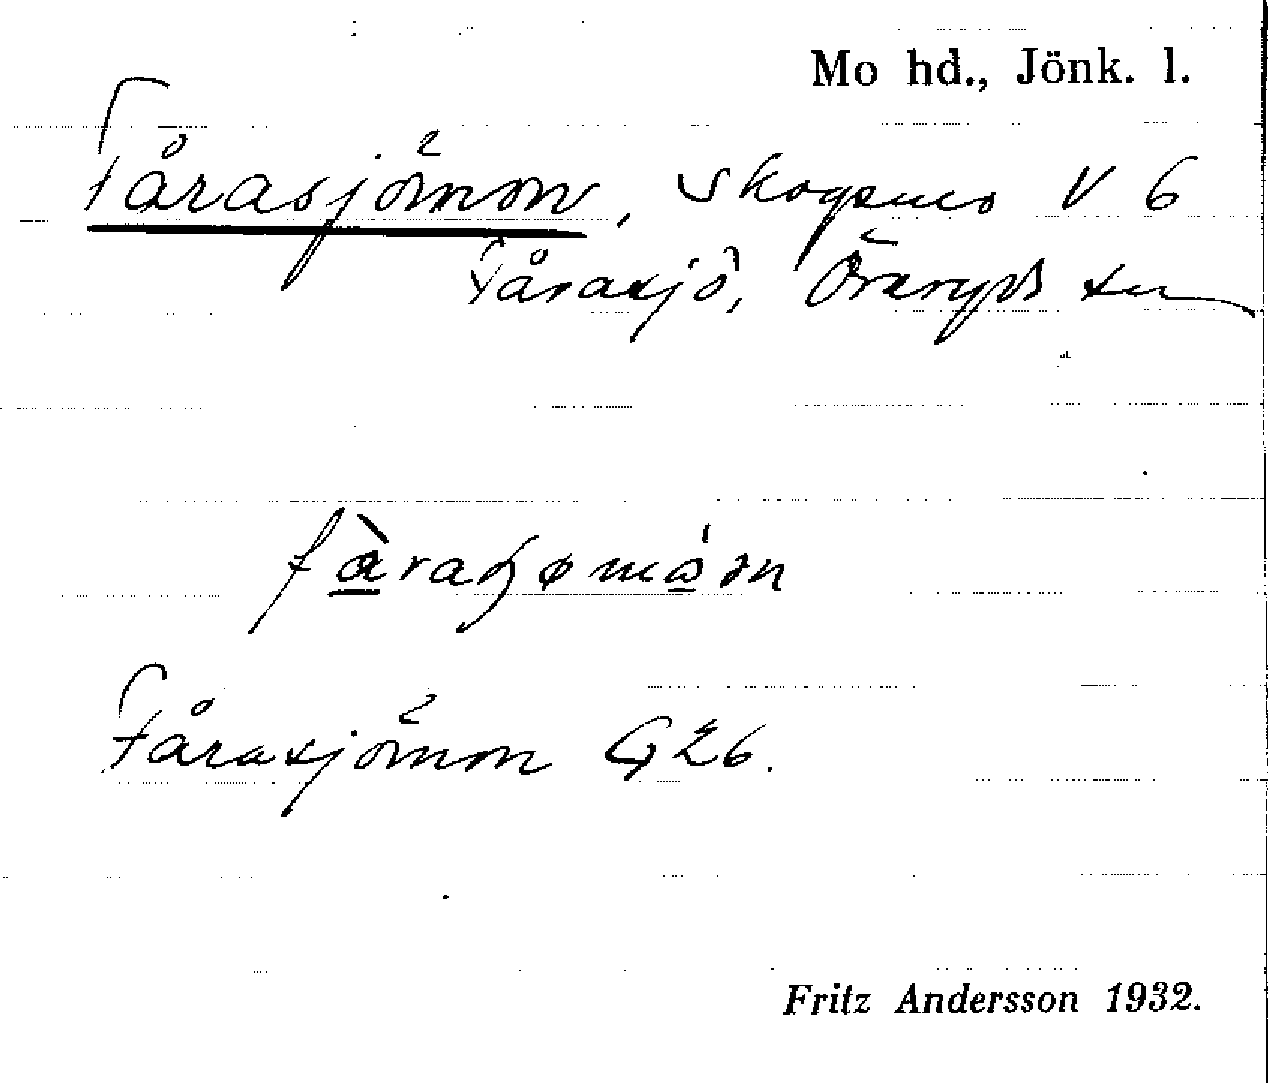 Mo hd., Jönk. l.
Fårasjömon, Skogsmo V 6
Fårasjö, Öreryds sn
Fårasjömon G 26.
Fritz Andersson 1932.